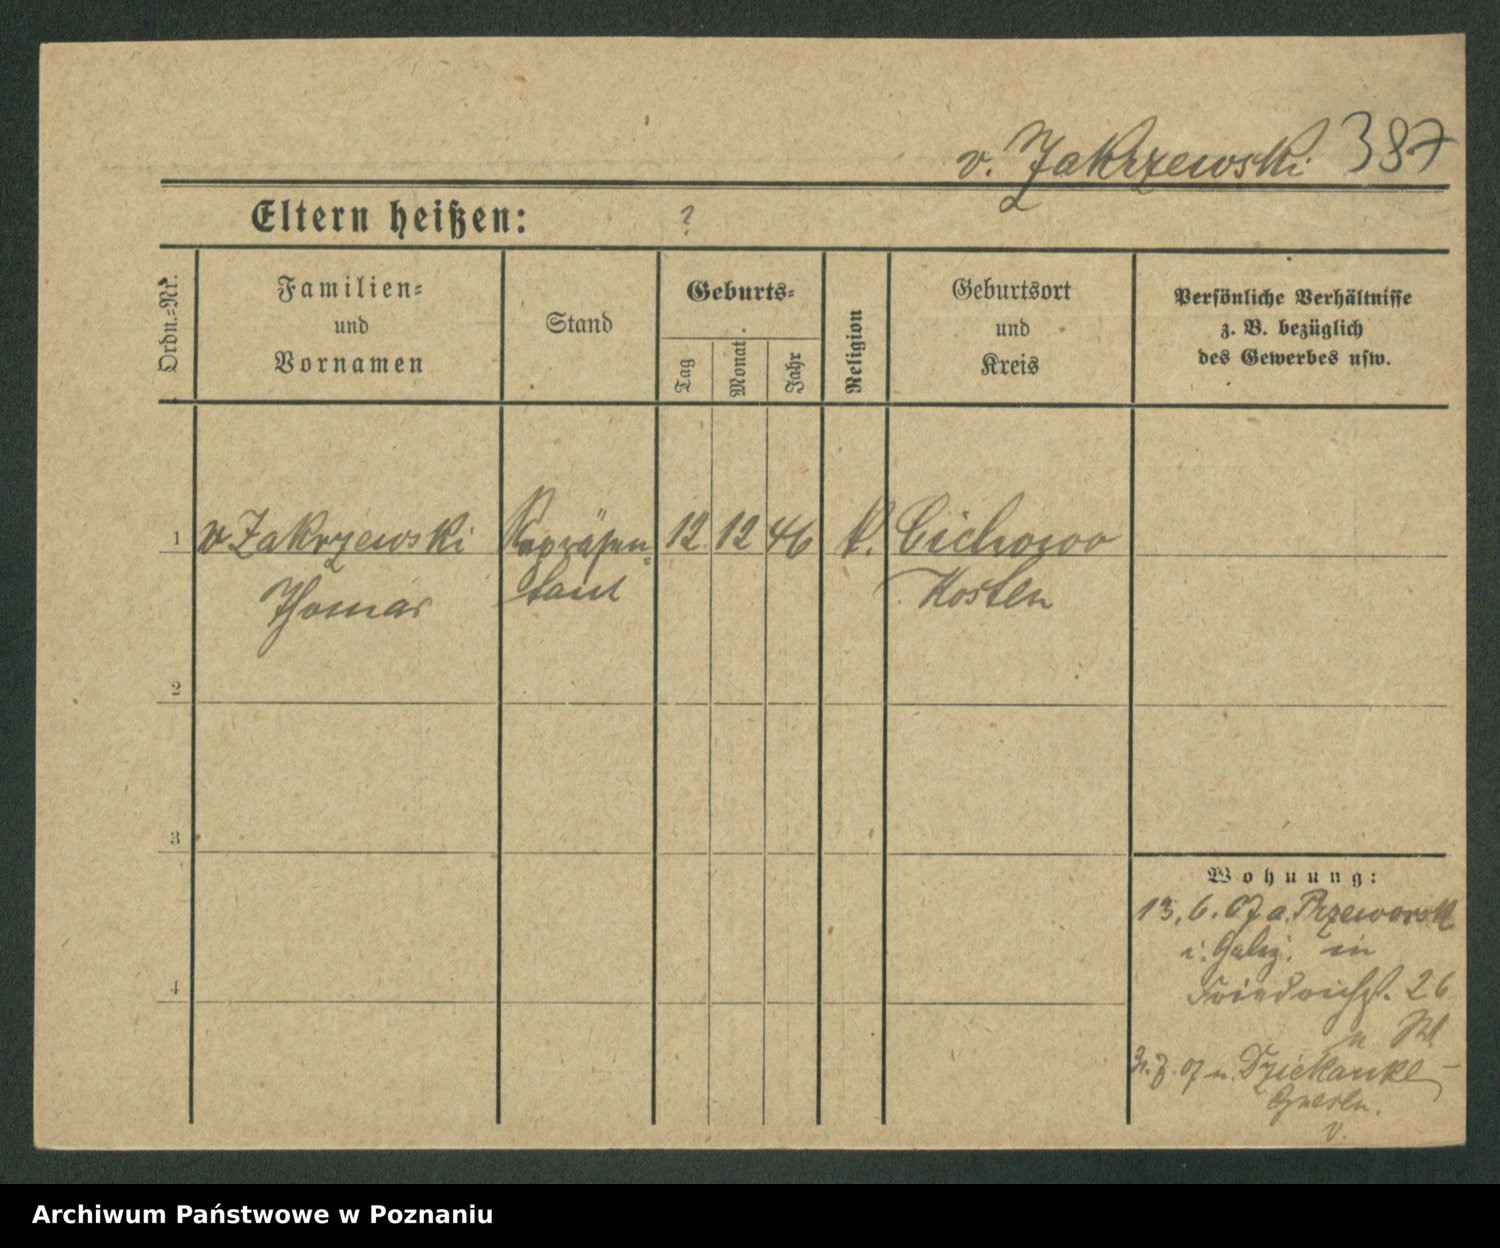 v. Zakrzewski 387
Eltern heißen: ?
Ordn.-Nr.
Familien-
und
Vornamen
Stand
Geburts-
Tag
Monat
Jahr
Religion
Geburtsort
und
Kreis
Persönliche Verhältnisse
z. B. bezüglich
des Gewerbes usw.
1 v Zakrzewski Repräsen- 12 12 46 k. Cichowo
Thomas tant Kosten
2
3
4
Wohnung:
13. 6. 07 a. Przeworsk
i. Galiz. in
Friedrichst. 26
7. 07 n. Dziekanke
Gnesen.
v.
Archiwum Państwowe w Poznaniu